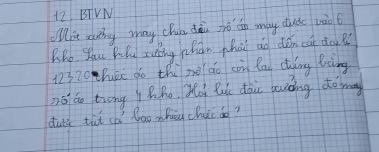 12. BTVN
Một xưởng may chia đều số áo may được vào 6
kho. Sau khi xưởng phân phối áo đến các đại lí
12320 chiếc áo thì số áo còn lại đúng bằng
số áo trong 4 kho. Hỏi lúc đầu xưởng đó may
được tất cả bao nhiêu chiếc áo?